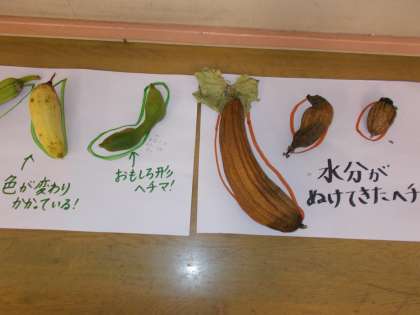 色が変わり
かかっている!
おもしろ形
ヘチマ!
水分が
ぬけてきたヘチ